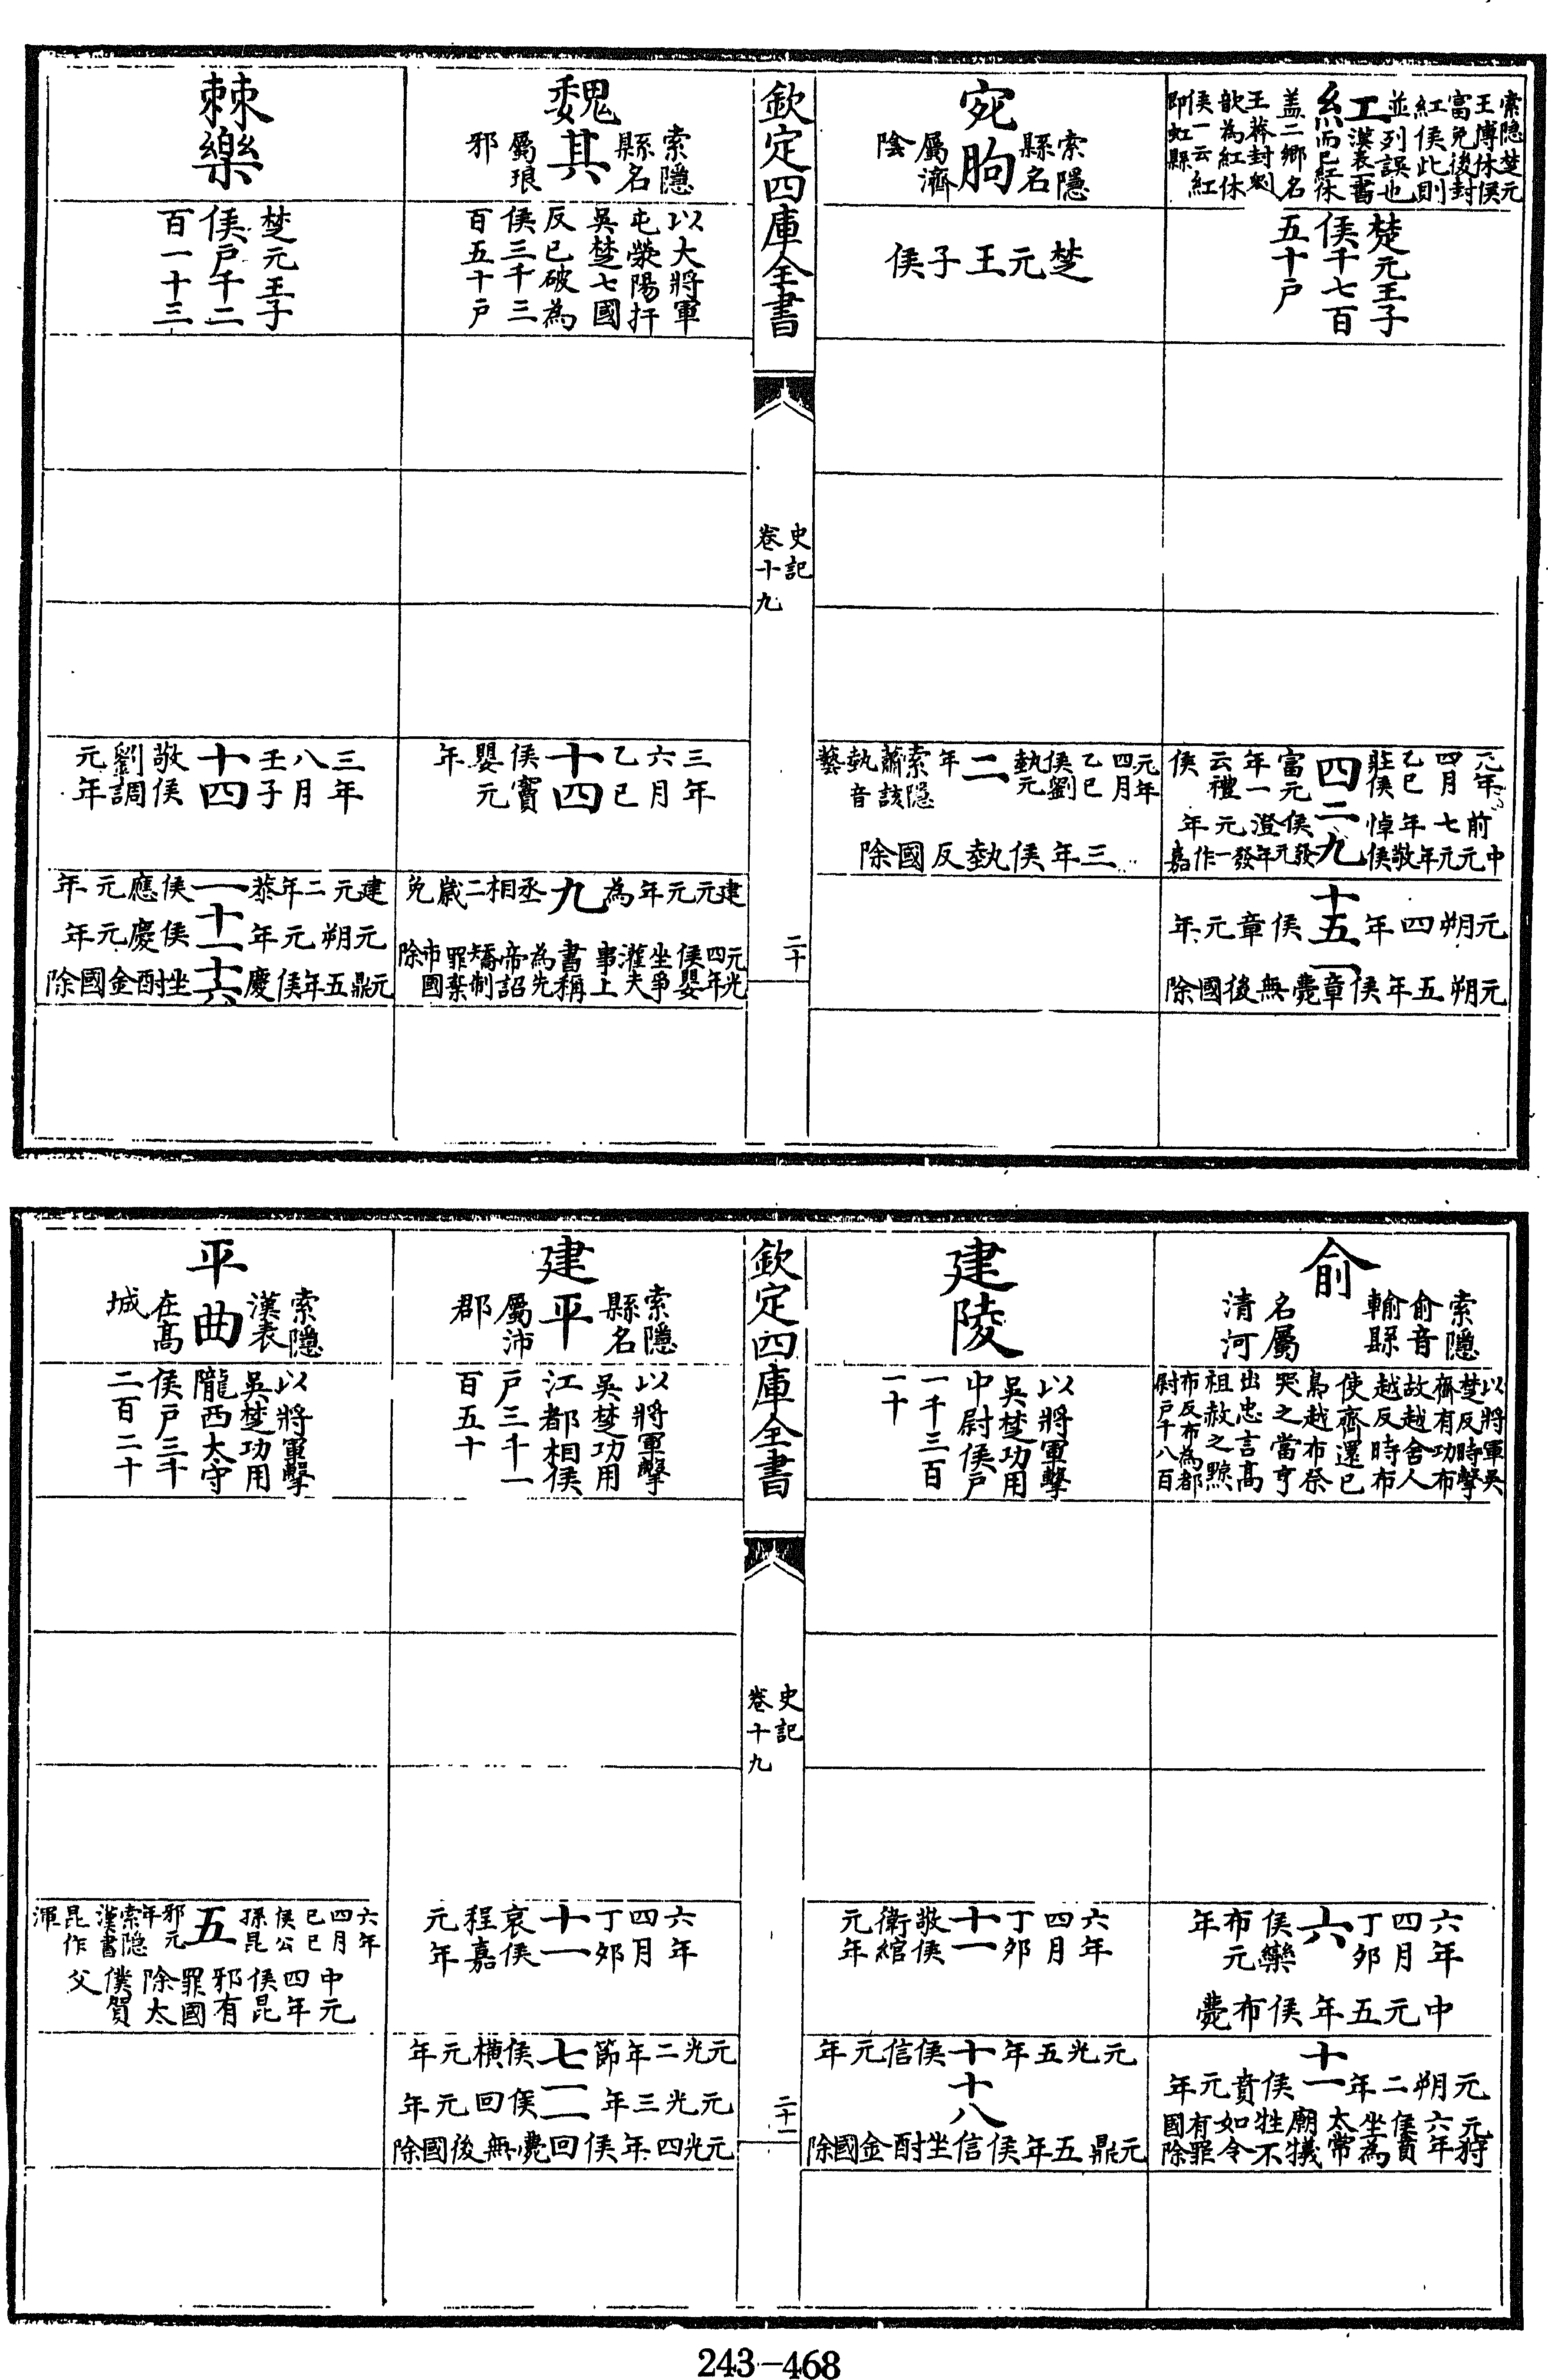 紅
索隱楚元
王傳休侯
富免後封
紅侯此則
並列誤也
漢表一書
而已紅休
盖二鄉名
王莽封劉
歆為紅休
侯一云紅
即虹縣
楚元王子
侯千七百
五十戶
元年四月乙巳莊侯富元年
一云禮侯
四
前七年悼侯澄元年
二
中元元年敬侯發元年發一作嘉
九
十五
元朔四年侯章元年
一
元朔五年侯章薨無後國除
宛朐
索隱縣名屬濟陰
楚元王子侯
元年四月乙巳侯劉埶元年
二
索隱蕭該埶音藝
三年侯埶反國除
欽定四庫全書
史記
卷十九
二十
魏其
索隱縣名屬琅邪
以大將軍
屯滎陽扞
吳楚七國
反已破為
侯三千三
百五十戶
三年六月乙巳
十四
侯竇嬰元年
建元元年為
九
丞相二歲免
元光四年侯嬰坐爭灌夫事上書稱為先帝詔矯制罪棄市國除
棘樂
楚元王子
侯戶千二
百一十三
三年八月壬子
十四
敬侯劉調元年
建元二年恭
一
侯應元年
元朔元年
十一
侯慶元年
十六
元鼎五年侯慶坐酎金國除
俞
索隱俞音輸縣名屬清河
以將軍吳
楚反時擊
齊有功布
故越舍人
越反時布
使齊還已
梟越布祭
哭之當亨
出忠言高
祖赦之黥
布反布為都
尉戶千八百
六年四月丁卯
六
侯欒布元年
中元五年侯布薨
十一
元朔二年侯賁元年
元狩六年侯賁坐為太常廟犧牲不如令有罪國除
建陵
以將軍擊
吳楚功用
中尉侯戶
一千三百
一十
六年四月丁卯
十一
敬侯衛綰元年
元光五年
十
侯信元年
十八
元鼎五年侯信坐酎金國除
欽定四庫全書
史記
卷十九
二十一
建平
索隱縣名屬沛郡
以將軍擊
吳楚功用
江都相侯
戶三千一
百五十
六年四月丁卯
十一
哀侯程嘉元年
元光二年節
七
侯橫元年
元光三年
一
侯回元年
一
元光四年侯回薨無後國除
平曲
索隱漢表在高城
以將軍擊
吳楚功用
隴西太守
侯戶三千
二百二十
六年四月己巳侯公孫昆邪元年
五
索隱漢書昆作渾
中元四年侯昆邪有罪國除太僕賀父
243-468